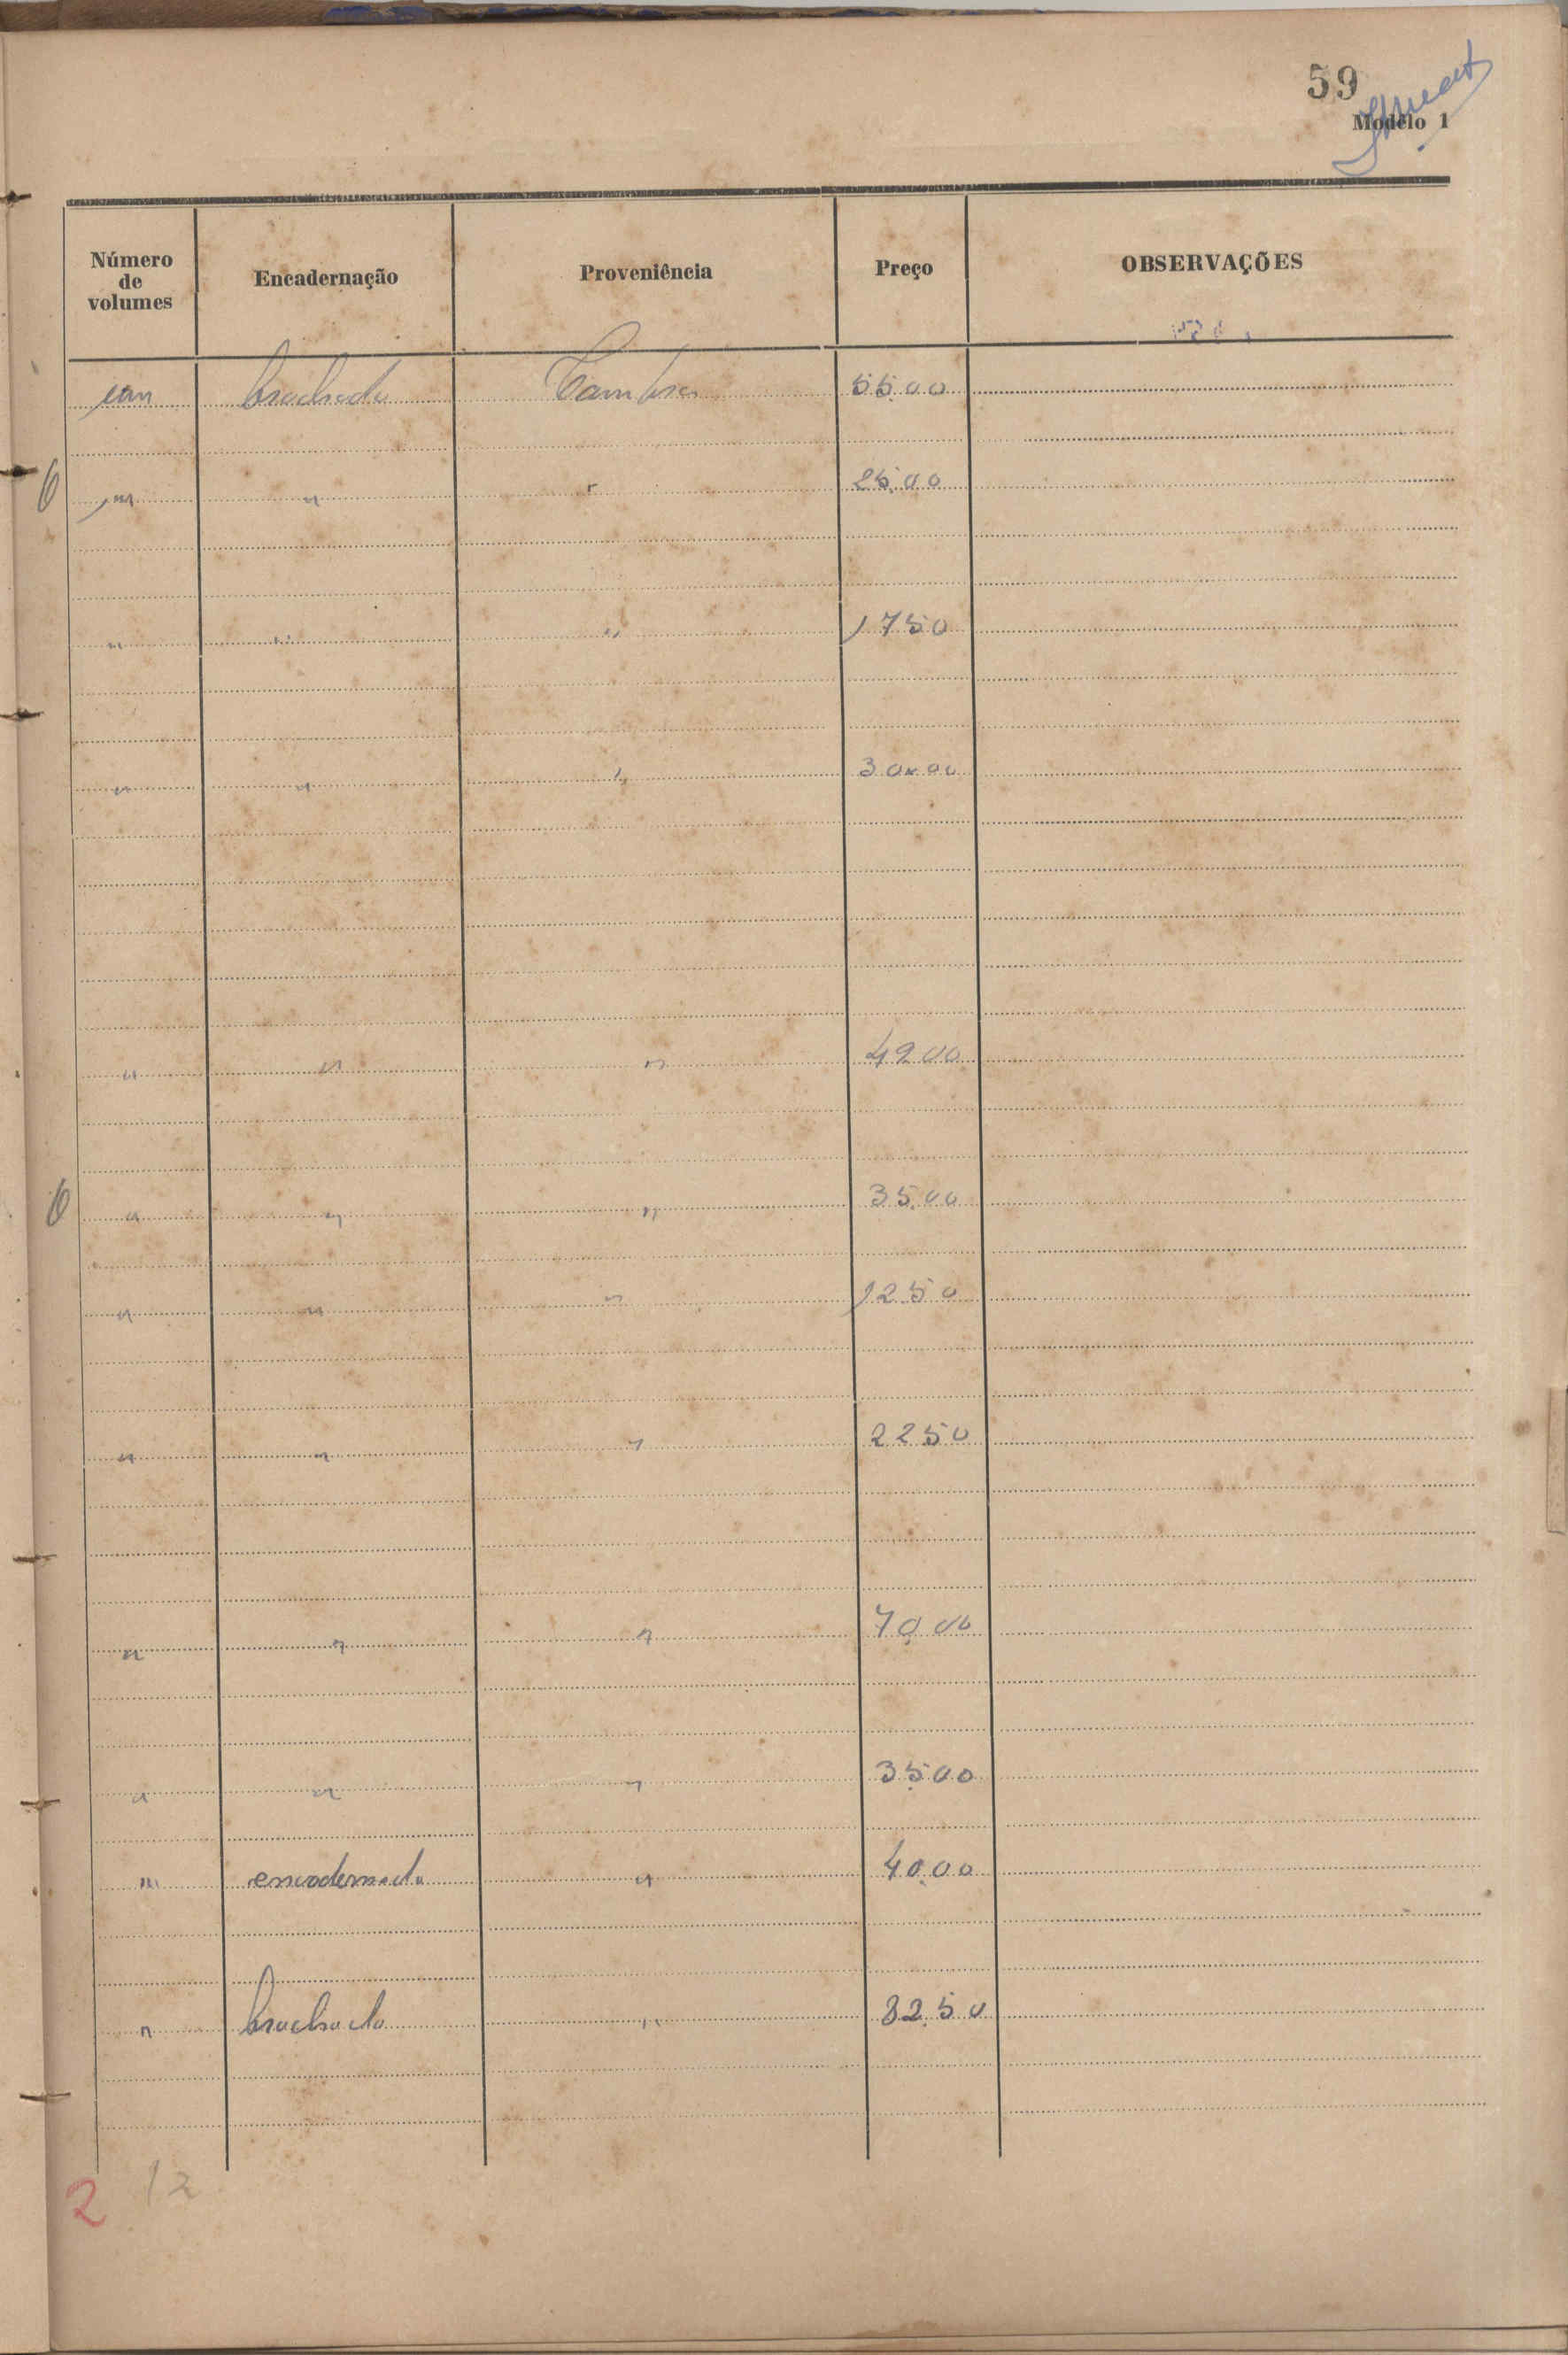 59
Modêlo 1
Número de volumes Encadernação Proveniência Preço OBSERVAÇÕES
um brochado Camara 55.00
6 um " " 25.00
" " " 1750
" " " 30.00
" " " 4200
6 " " " 35.00
" " " 1250
" " " 2250
" " " 70.00
" " " 35.00
" encadernado " 40.00
" brochado " 82.50
2 12